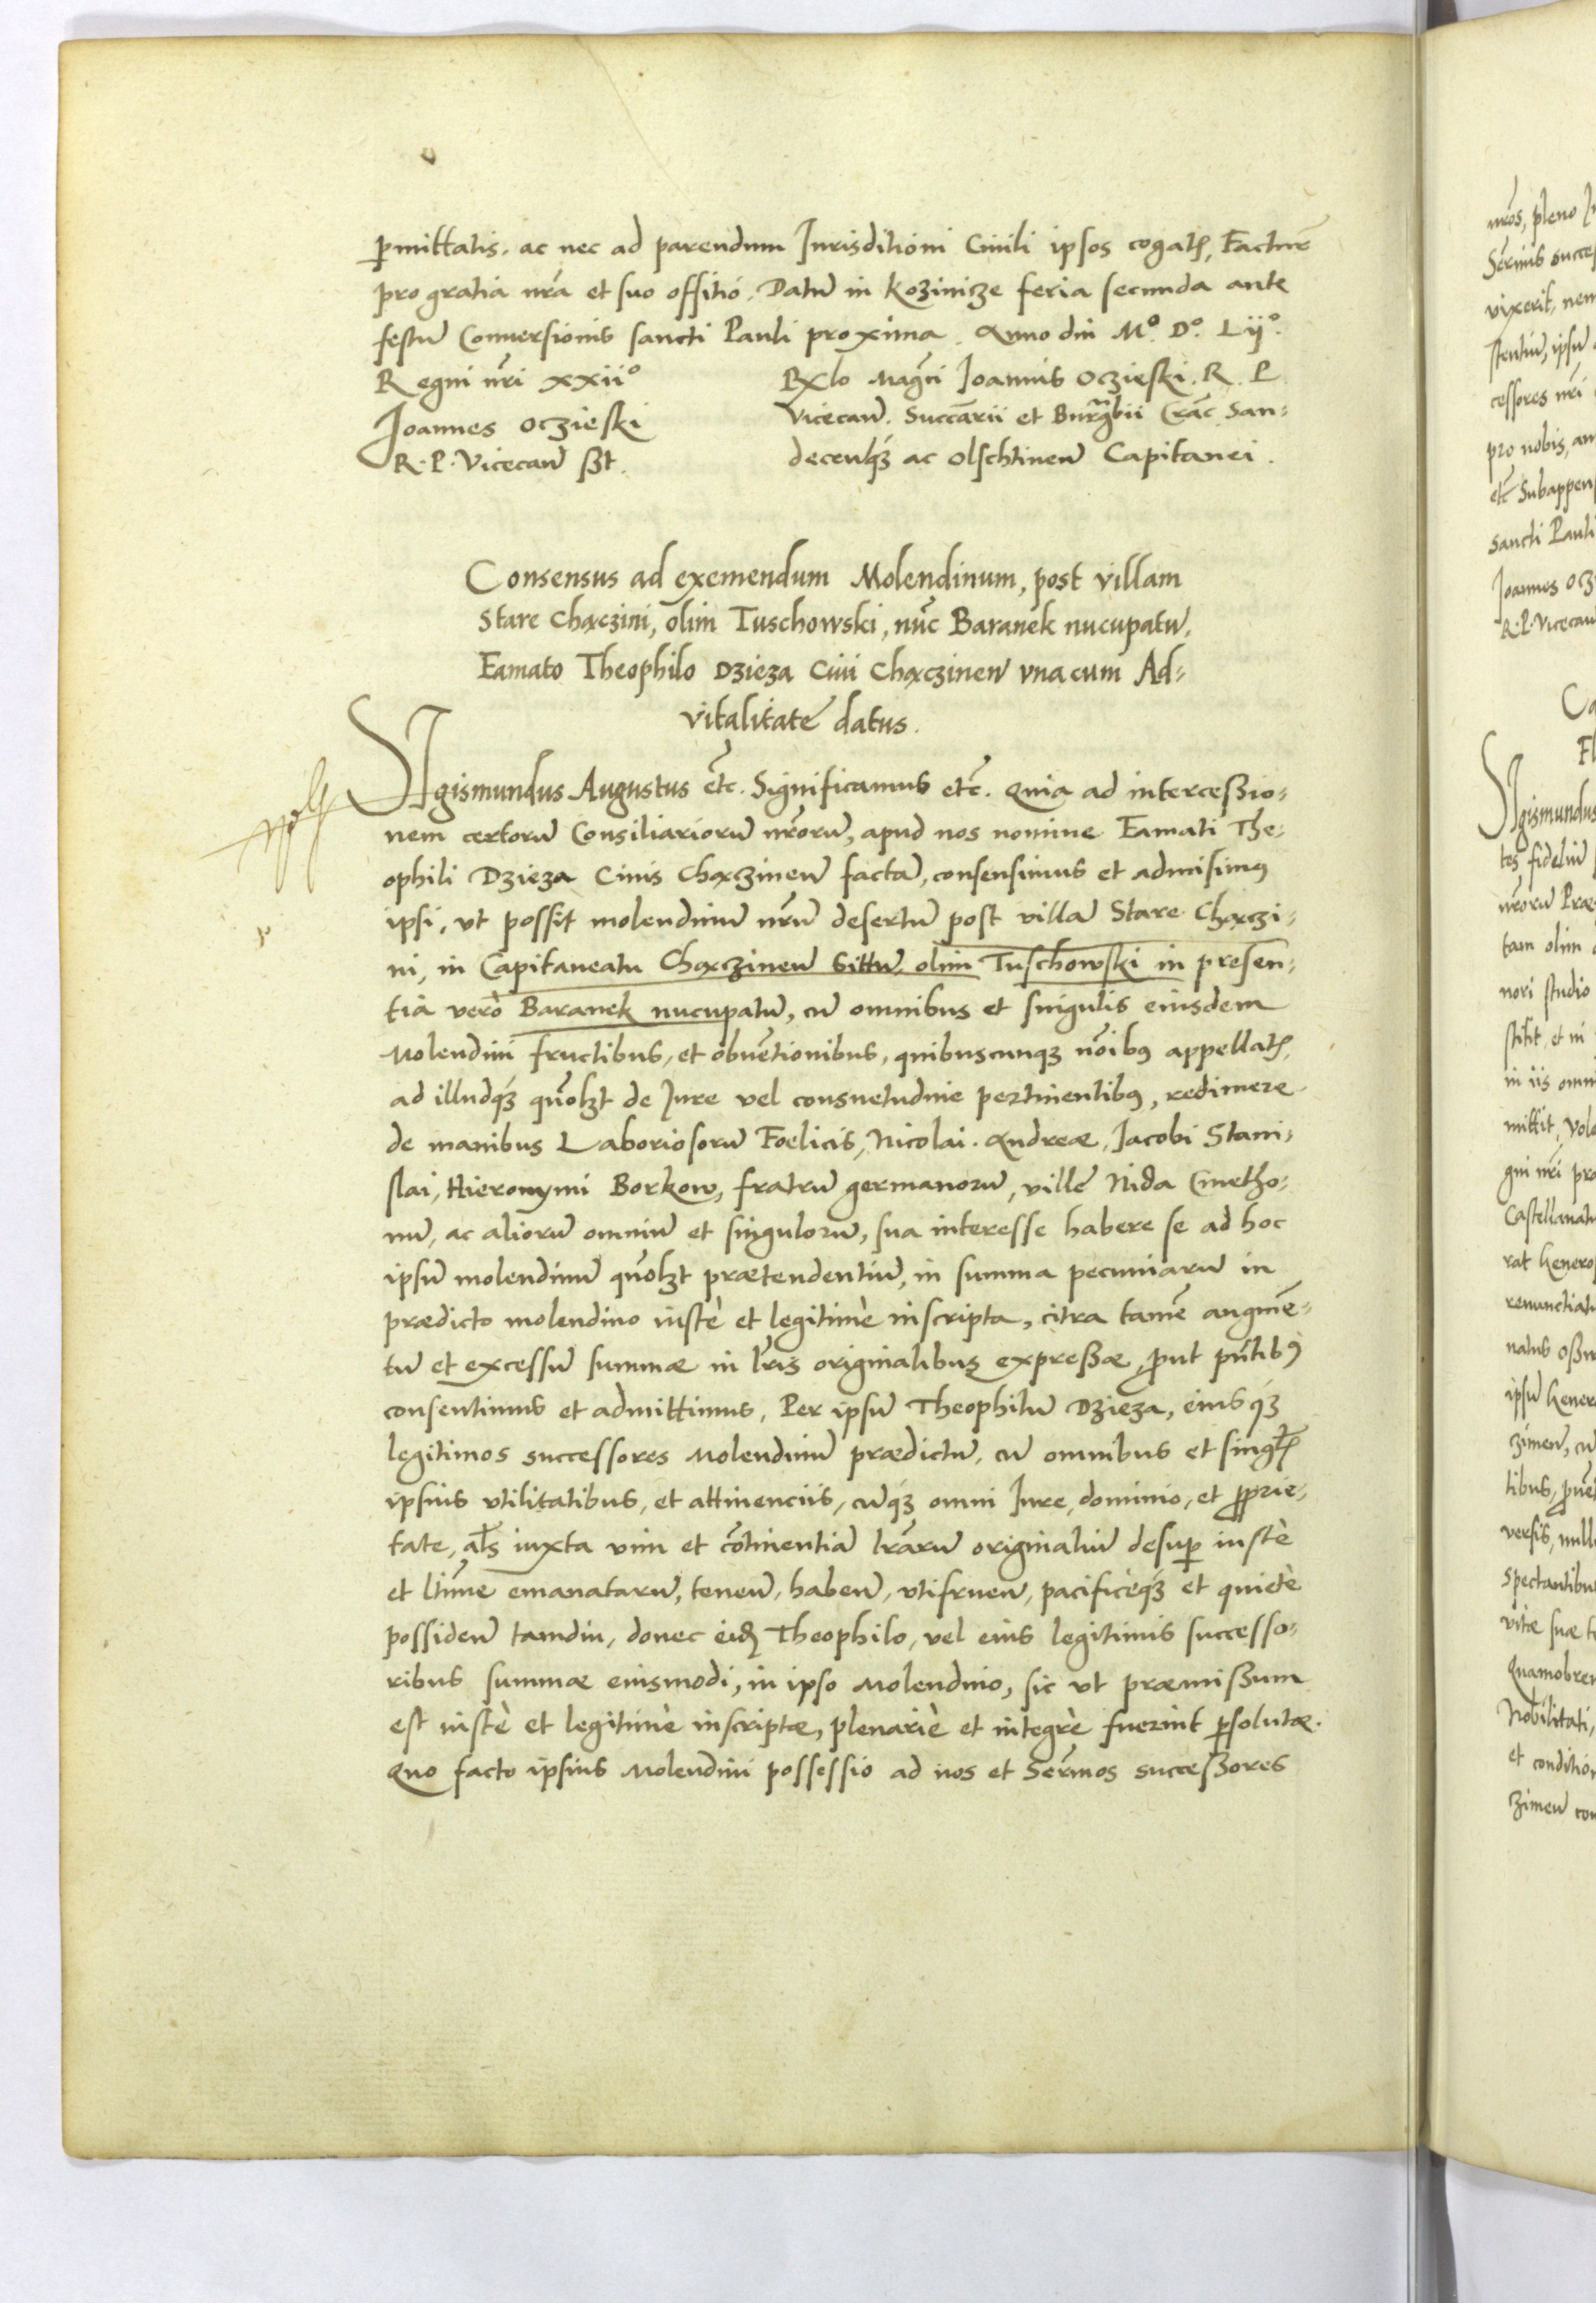 ꝑmittatis. ac nec ad parendum Jurisditioni Ciuili ipsos cogatis, Facturi
pro gratia nr̃a et suo offitio. Datũ in Kozinicze feria secunda ante
festũ Conuersionis sancti Pauli proxima. Anno dni Mº. Dº. Lijº.
Regni nr̃i xxiiº
Joannes Oczieski
R. P. Vicecan̄ sst.
Rlo Magci Joannis Oczieski. R. P.
Vicecan̄. Succarii et Burgrabii Crac. San-
decen̄q₃ ac Olschtinen̄ Capitanei.
Consensus ad exemendum Molendinum, post villam
Stare Chączini, olim Tuschowski, nũc Baranek nucupatũ,
Famato Theophilo Dzieza Ciui Chączinen̄ vna cum Ad-
vitalitate datus.
Sigismundus Augustus etc. Significamus etc. Quia ad intercessio-
nem certorũ Consiliariorũ nr̃orũ, apud nos nomine Famati The-
ophili Dzieza Ciuis Chączinen̄ factã, consensimus et admisimꝰ
ipsi, vt possit molendinũ nr̃um desertũ post villã Stare Chączi-
ni, in Capitaneatu Chączinen̄ sittũ, olim Tuschowski in presen-
tia verò Baranek nucupatũ, cũ omnibus et singulis eiusdem
Molendini fructibus, et obuẽtionibus, quibuscunq₃ nõibꝰ appellatis,
ad illudq₃ quõlꝫt de Jure vel consuetudine pertinentibꝰ, redimere
de manibus Laboriosorũ Foelicis, Nicolai. Andreæ, Jacobi Stani-
slai, Hieronymi Borkow, fratrũ germanorũ, ville Nida Cmetho-
nũ, ac aliorũ omniũ et singulorũ, sua interesse habere se ad hoc
ipsũ molendinũ quõlꝫt prætendentiũ, in summa pecuniarũ in
prædicto molendino iustè et legitimè inscripta, citra tamẽ augmẽ-
tũ et excessũ summæ in lr̃is originalibus expressæ, ꝓut pñtibꝰ
consentimus et admittimus, Per ipsũ Theophilũ Dzieza, eiusq₃
legitimos successores Molendinũ prædictũ, cũ omnibus et singl̃is
ipsius vtilitatibus, et attinenciis, cũq₃ omni Jure, dominio, et ꝓprie-
tate, al̃s iuxta vim et cõtinentiã lr̃arũ originaliũ desuꝑ iustè
et ltĩme emanatarũ, tenen̄, haben̄, vtifruen̄, pacificèq₃ et quietè
possiden̄ tamdiu, donec eidẽ Theophilo, vel eius legitimis successo-
ribus summæ eiusmodi, in ipso Molendino, sic vt præmissum
est iustè et legitimè inscriptæ, plenariè et integrè fuerint ꝑsolutæ.
Quo facto ipsius Molendini possessio ad nos et Serm̃os successores